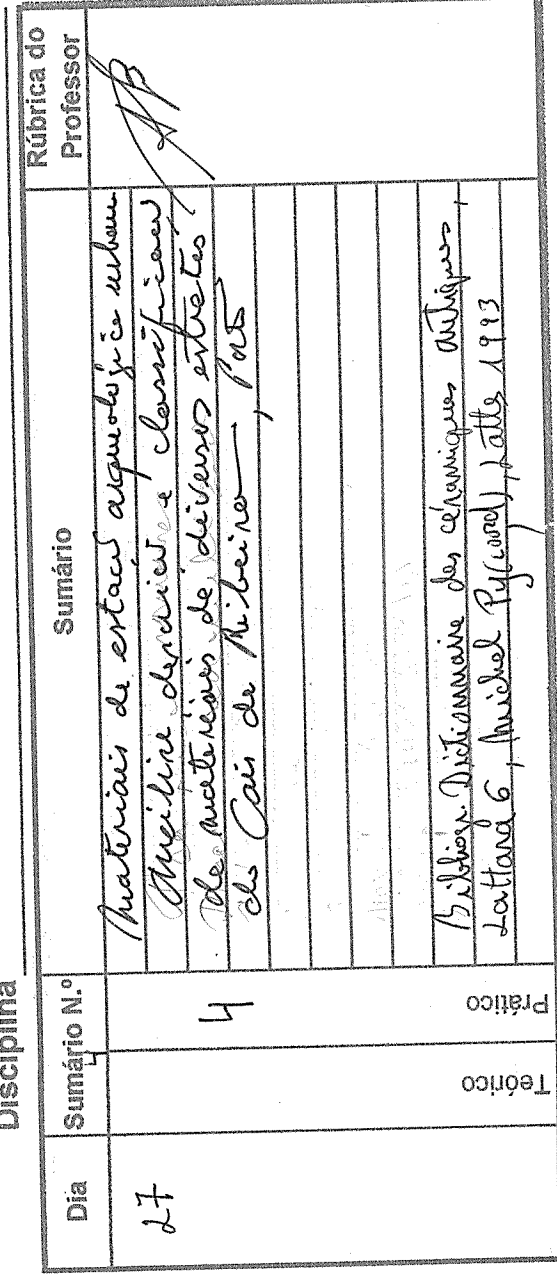 Disciplina
Dia
Sumário N.º
4
Sumário
Rúbrica do
Professor
27
4
Materiais de estação arqueológica urbana
Análise descrição e classificação
de materiais de diversos estratos
do Cais da Ribeira, Porto
Bibliogr. Dictionnaire des céramiques antiques,
Lattara 6, Michel Py (coord), Lattes 1993
Teórico
Prático